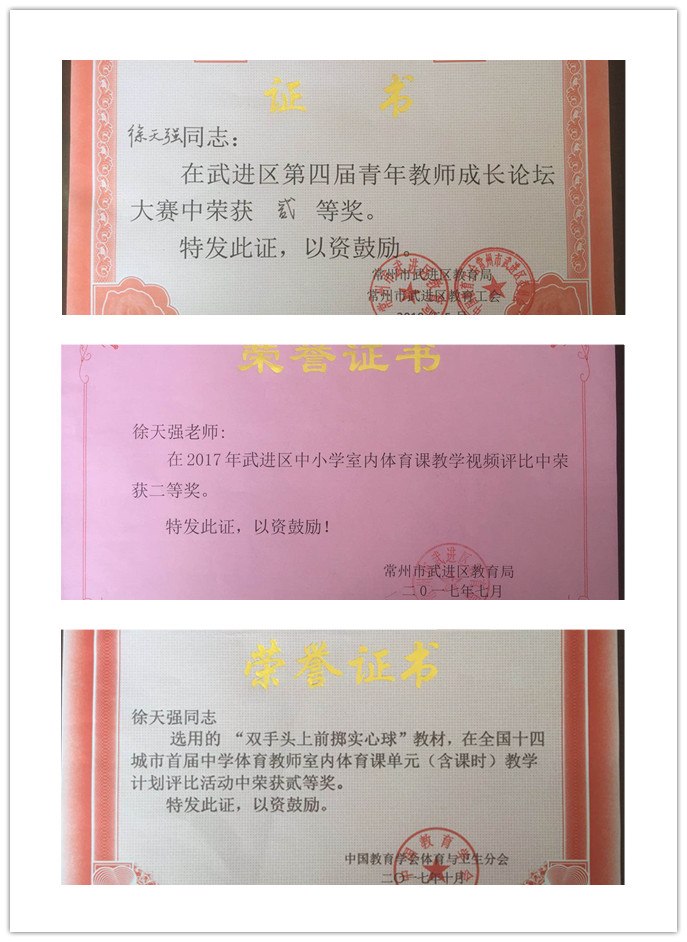 证 书
徐天强同志：
在武进区第四届青年教师成长论坛
大赛中荣获 贰 等奖。
特发此证，以资鼓励。
常州市武进区教育局
常州市武进区教育工会
荣誉证书
徐天强老师：
在2017年武进区中小学室内体育课教学视频评比中荣
获二等奖。
特发此证，以资鼓励！
常州市武进区教育局
二0一七年七月
荣誉证书
徐天强同志
选用的 “双手头上前掷实心球”教材，在全国十四
城市首届中学体育教师室内体育课单元（含课时）教学
计划评比活动中荣获贰等奖。
特发此证，以资鼓励。
中国教育学会体育与卫生分会
二〇一七年十月